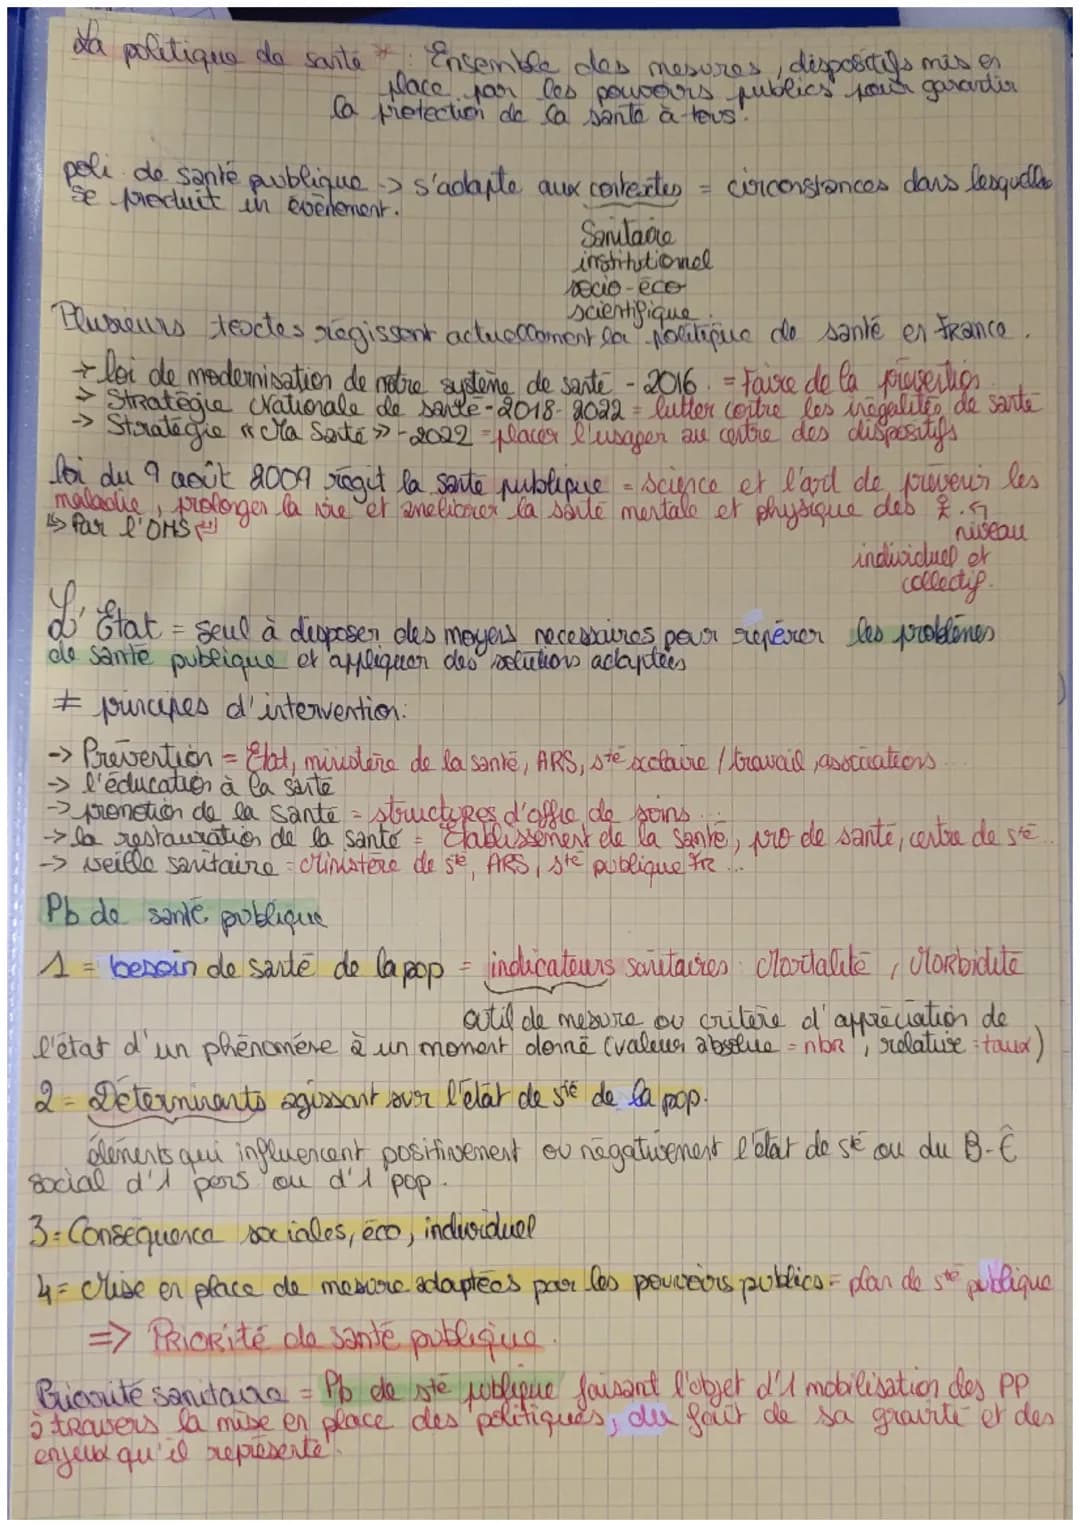 La politique de santé * : Ensemble des mesures, dispositifs mis en
place par les pouvoirs publics pour garantir
la protection de la santé à tous.
poli de santé publique -> s'adapte aux contextes = circonstances dans lesquelles
se produit un évènement.
Sanitaire
institutionnel
socio-éco
scientifique.
Plusieurs textes régissent actuellement la politique de santé en France.
-> loi de modernisation de notre système de santé - 2016. = Faire de la prévention
-> Stratégie Nationale de santé - 2018-2022 = lutter contre les inégalités de santé
-> Stratégie « Ma Santé » - 2022 = placer l'usager au centre des dispositifs
loi du 9 août 2009 régit la santé publique = science et l'art de prévenir les
maladie, prolonger la vie et améliorer la santé mentale et physique des
↳ Par l'OMS
niveau
individuel et
collectif.
L'État = seul à disposer des moyens necessaires pour repérer les problèmes
de santé publique et appliquer des solutions adaptées
≠ principes d'intervention:
-> Prévention = Etat, ministère de la santé, ARS, sté scolaire / travail, associations ...
-> l'éducation à la santé
-> promotion de la santé = structures d'offre de soins ...
-> la restauration de la santé = Etablissement de la santé, pro de santé, centre de sté ...
-> veille sanitaire = Ministère de sté, ARS, sté publique Fr ...
Pb de santé publique
1 = besoin de santé de la pop = indicateurs sanitaires Mortalité, Morbidité
outil de mesure ou critère d'appréciation de
l'état d'un phénomène à un moment donné (valeur absolue = nbr, relative = taux)
2 = Déterminants agissant sur l'état de sté de la pop.
éléments qui influencent positivement ou négativement l'état de sté ou du B-Ê
social d'1 pers ou d'1 pop.
3 = Conséquence sociales, éco, individuel
4 = Mise en place de mesure adaptées par les pouvoirs publics = plan de sté publique
=> PRIORité de santé publique.
Priorité sanitaire = Pb de sté publique faisant l'objet d'1 mobilisation des PP
à travers la mise en place des politiques, du fait de sa gravité et des
enjeux qu'il représente.